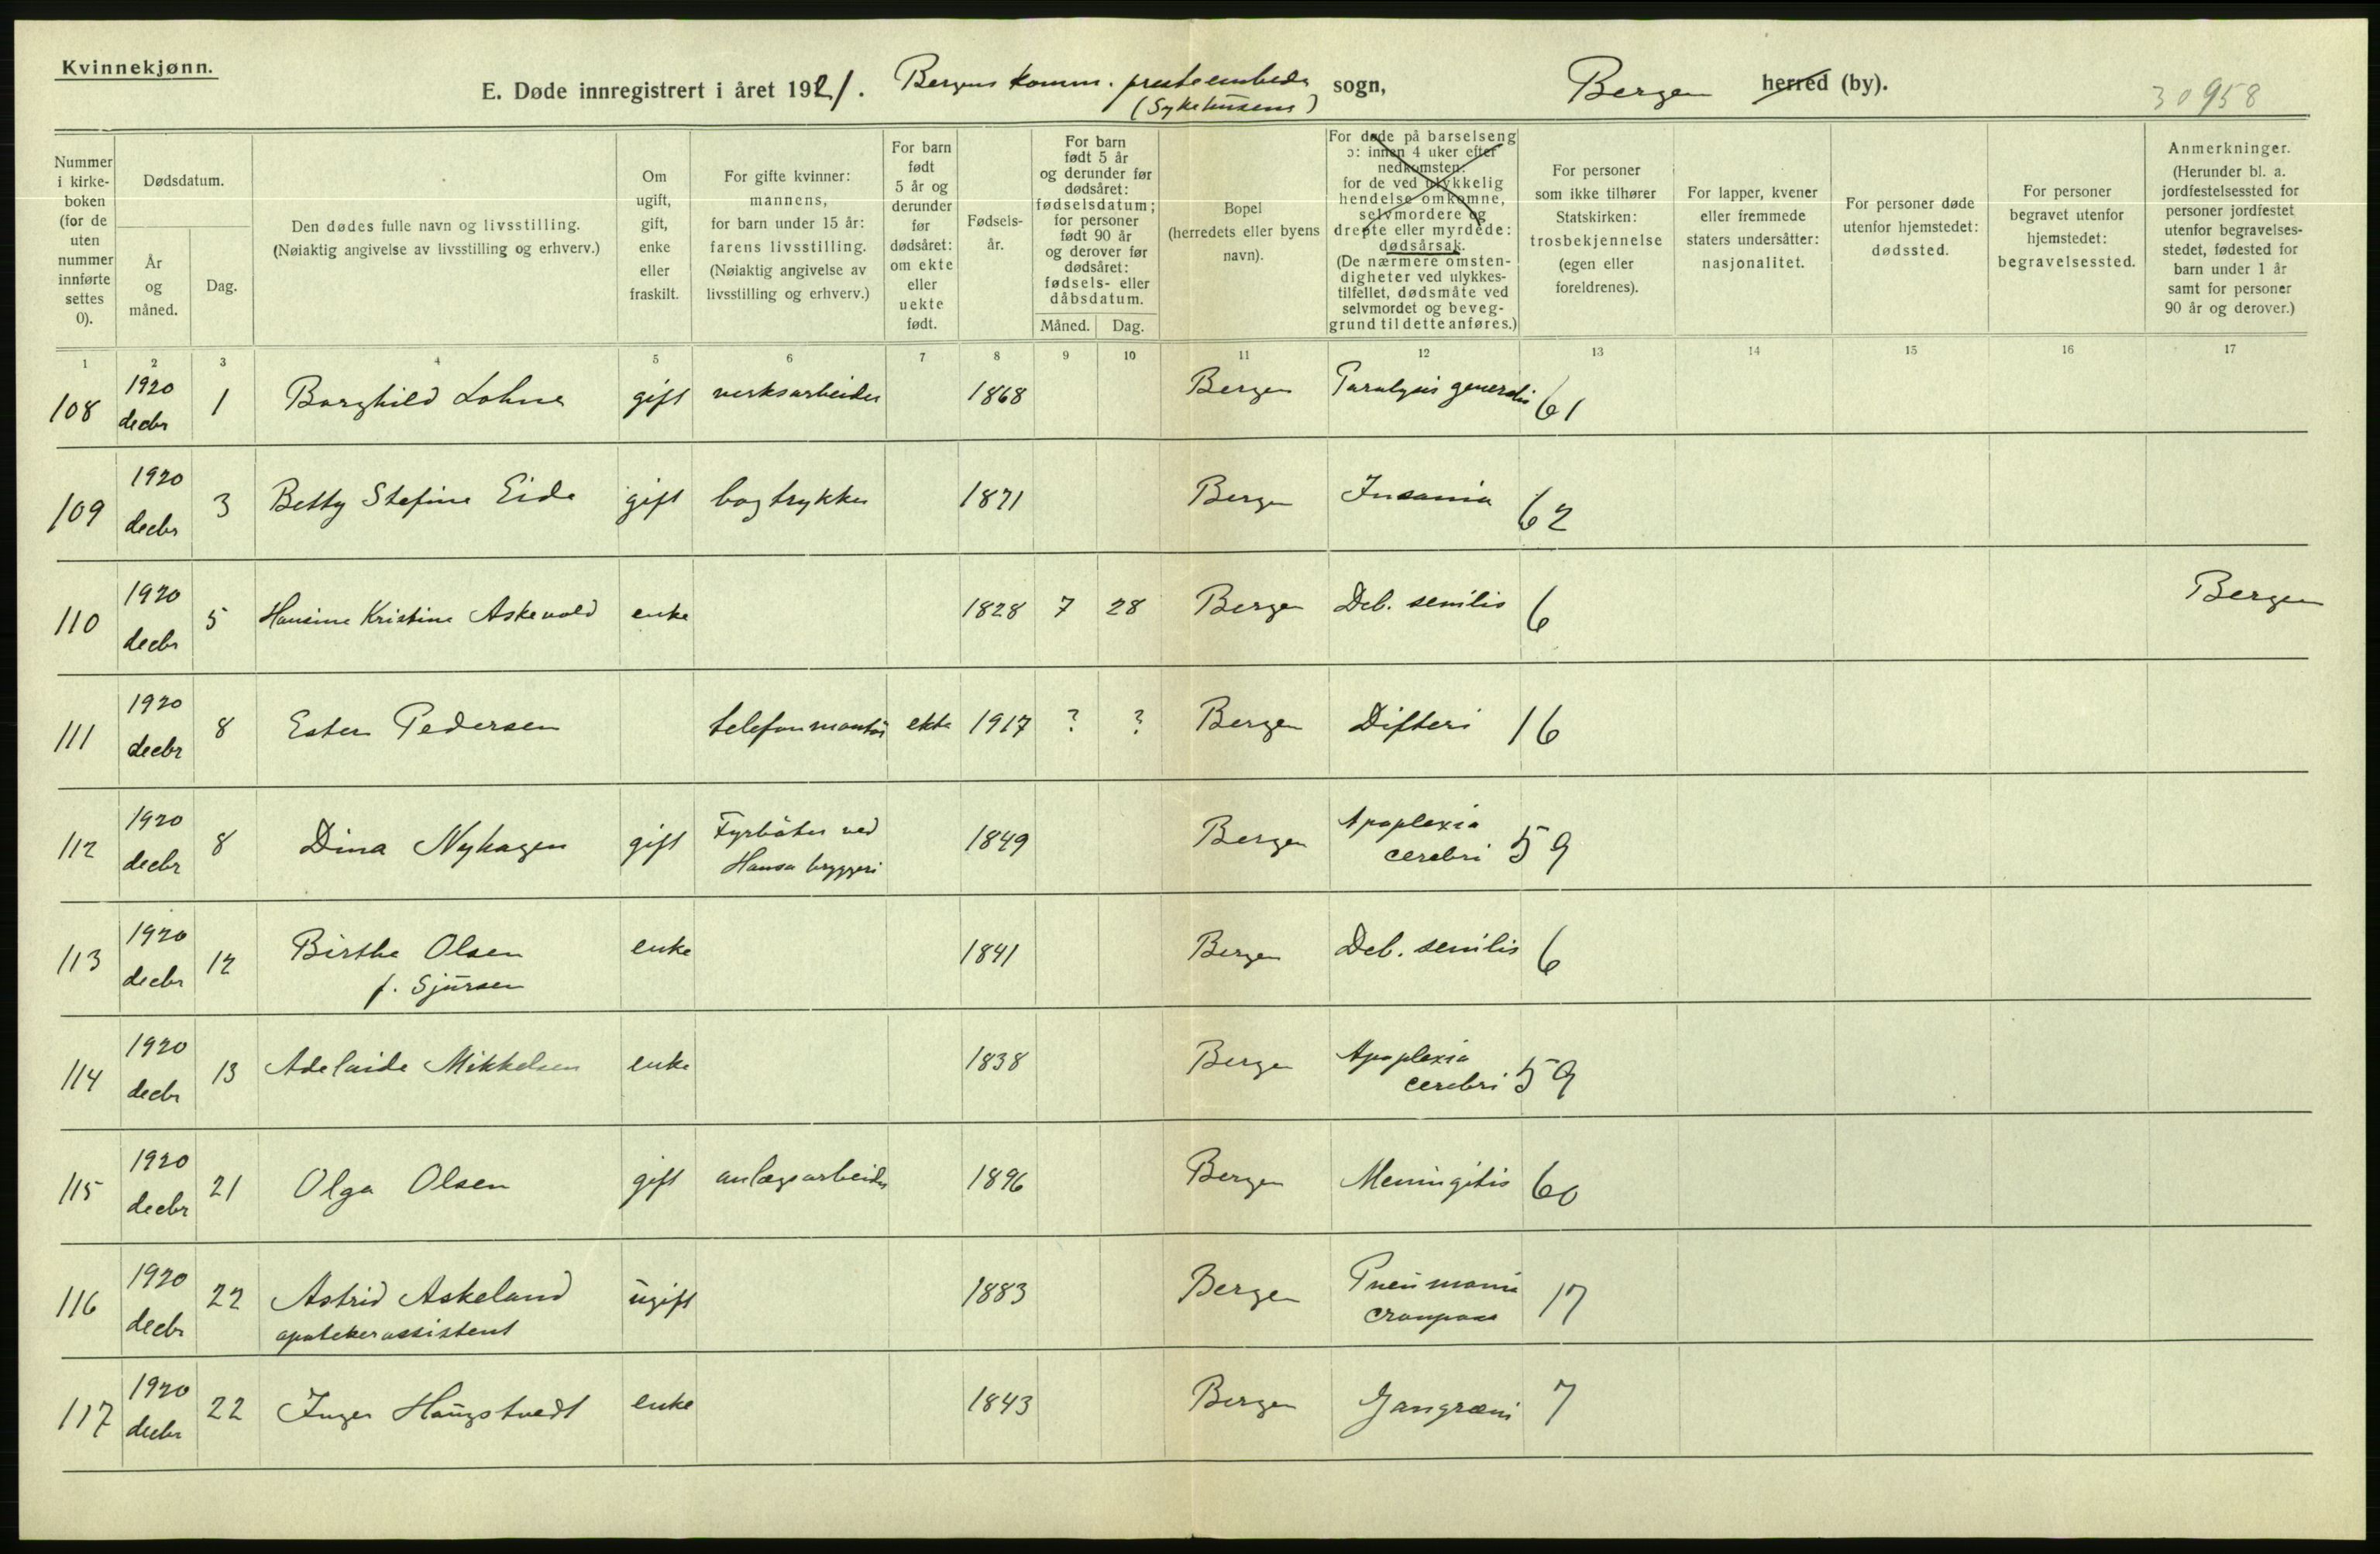 Kvinnekjønn.
E. Døde innregistrert i året 1921. Bergens komm. presteembede sogn, Bergen herred (by). 30958
(Sykehusene)
Nummer i kirkeboken (for de uten nummer innførte settes 0).
Dødsdatum.
År og måned.
Dag.
Den dødes fulle navn og livsstilling.
(Nøiaktig angivelse av livsstilling og erhverv.)
Om ugift, gift, enke eller fraskilt.
For gifte kvinner: mannens, for barn under 15 år: farens livsstilling.
(Nøiaktig angivelse av livsstilling og erhverv.)
For barn født 5 år og derunder før dødsåret: om ekte eller uekte født.
Fødselsår.
For barn født 5 år og derunder før dødsåret: fødselsdatum; for personer født 90 år og derover før dødsåret: fødsels- eller dåbsdatum.
Måned. Dag.
Bopel (herredets eller byens navn).
For døde på barselseng ɔ: innen 4 uker efter nedkomsten: for de ved ulykkelig hendelse omkomne, selvmordere og drepte eller myrdede: dødsårsak.
(De nærmere omstendigheter ved ulykkestilfellet, dødsmåte ved selvmordet og beveggrund til dette anføres.)
For personer som ikke tilhører Statskirken: trosbekjennelse (egen eller foreldrenes).
For lapper, kvener eller fremmede staters undersåtter: nasjonalitet.
For personer døde utenfor hjemstedet: dødssted.
For personer begravet utenfor hjemstedet: begravelsessted.
Anmerkninger.
(Herunder bl. a. jordfestelsessted for personer jordfestet utenfor begravelsesstedet, fødested for barn under 1 år samt for personer 90 år og derover.)
1 2 3 4 5 6 7 8 9 10 11 12 13 14 15 16 17
108 1920 decbr 1 Borghild Lohne gift verksarbeider 1868 Bergen Paralysis generalis 61
109 1920 decbr 3 Betty Stefine Eide gift bogtrykker 1871 Bergen Insania 62
110 1920 decbr 5 Hansine Kristine Askevold enke 1828 7 28 Bergen Deb. senilis 6 Bergen
111 1920 decbr 8 Ester Pedersen telefonmontør ekte 1917 ? ? Bergen Difteri 16
112 1920 decbr 8 Dina Nyhagen gift Fyrbøter ved Hansa bryggeri 1849 Bergen Apoplexia cerebri 59
113 1920 decbr 12 Birthe Olsen f. Sjursen enke 1841 Bergen Deb. senilis 6
114 1920 decbr 13 Adelaide Mikkelsen enke 1838 Bergen Apoplexia cerebri 59
115 1920 decbr 21 Olga Olsen gift anlægsarbeider 1896 Bergen Meningitis 60
116 1920 decbr 22 Astrid Askeland apotekerassistent ugift 1883 Bergen Pneumonia crouposa 17
117 1920 decbr 22 Inger Haugstvedt enke 1843 Bergen Gangræni 7